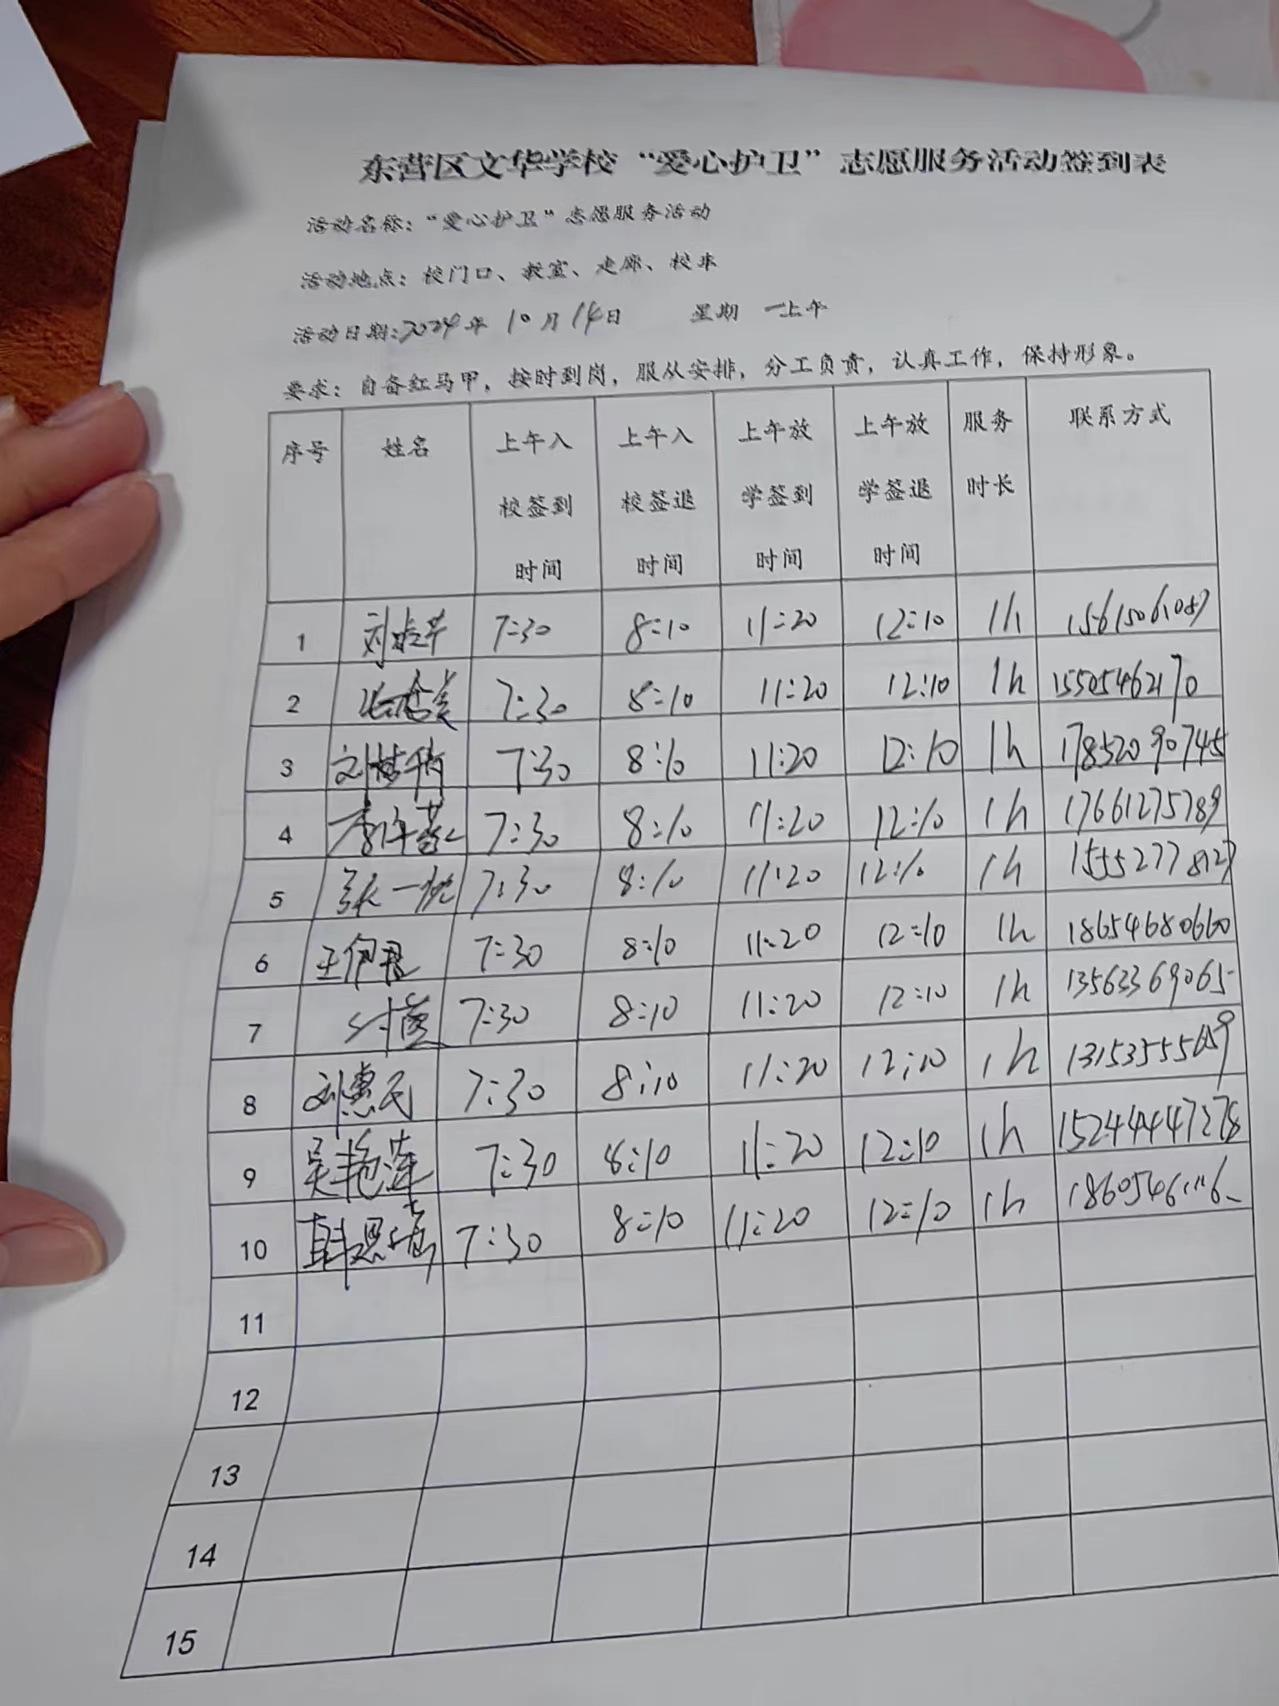 东营区文华学校“爱心护卫”志愿服务活动签到表
活动名称：“爱心护卫”志愿服务活动
活动地点：校门口、教室、走廊、校车
活动日期：2024年 10月 14日 星期 一上午
要求：自备红马甲，按时到岗，服从安排，分工负责，认真工作，保持形象。
序号 姓名 上午入校签到时间 上午入校签退时间 上午放学签到时间 上午放学签退时间 服务时长 联系方式
1 7:30 8:10 11:20 12:10 1h 15615061087
2 7:30 8:10 11:20 12:10 1h 15505462170
3 7:30 8:10 11:20 12:10 1h 17852090745
4 7:30 8:10 11:20 12:10 1h 17661275789
5 张一 7:30 8:10 11:20 12:10 1h 15552778127
6 王伊 7:30 8:10 11:20 12:10 1h 18654680660
7 7:30 8:10 11:20 12:10 1h 13563369065
8 刘惠民 7:30 8:10 11:20 12:10 1h
9 吴艳莲 7:30 8:10 11:20 12:10 1h 15244447278
10 韩思 7:30 8:10 11:20 12:10 1h
11
12
13
14
15